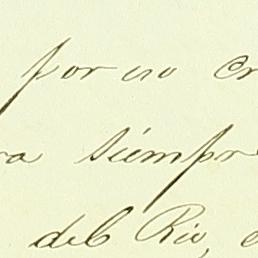 por no cr
ra siempre
del Rio, e